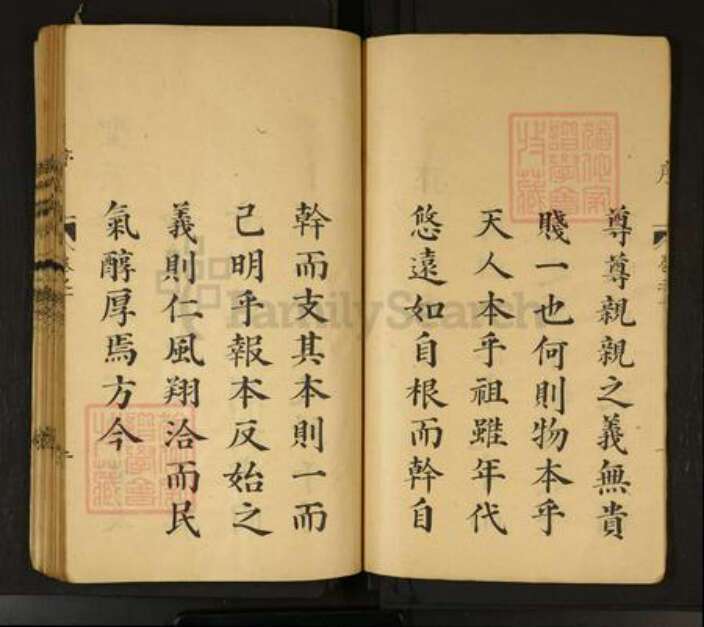 尊尊親親之義無貴
賤一也何則物本乎
天人本乎祖雖年代
悠遠如自根而幹自
幹而支其本則一而
己明乎報本反始之
義則仁風翔洽而民
氣醇厚焉方今
序
FamilySearch